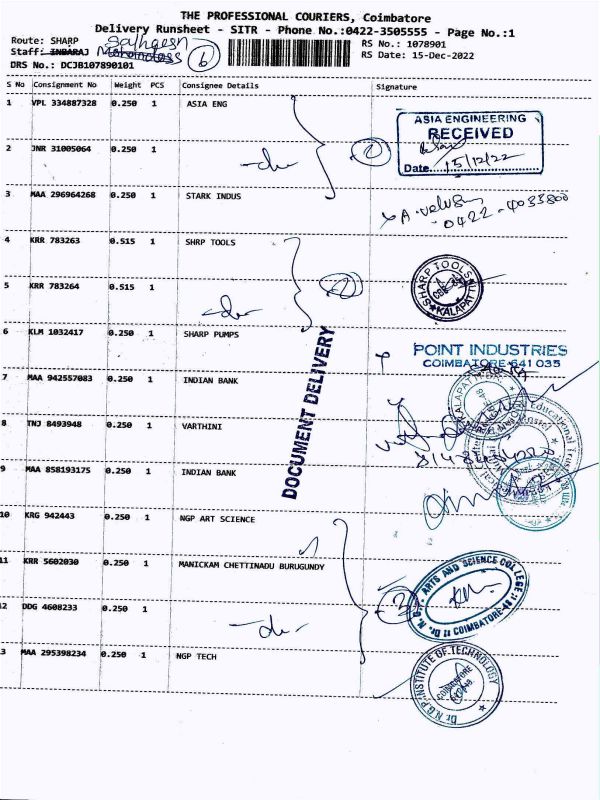 THE PROFESSIONAL COURIERS, Coimbatore
Delivery Runsheet - SITR - Phone No.:0422-3505555 - Page No.:1
Route: SHARP
RS No.: 1078901
Staff: INBARAJ
RS Date: 15-Dec-2022
DRS No.: DCJB107890101
6
S No Consignment No Weight PCS Consignee Details Signature
1 VPL 334887328 0.250 1 ASIA ENG
ASIA ENGINEERING
RECEIVED
Date 15/12/22
2 JNR 31005064 0.250 1
-do-
2
3 MAA 296964268 0.250 1 STARK INDUS
A. velu
0422-4033800
4 KRR 783263 0.515 1 SHRP TOOLS
SHARP TOOLS
KALAPATTI
5 KRR 783264 0.515 1
-do-
2
6 KLM 1032417 0.250 1 SHARP PUMPS
POINT INDUSTRIES
COIMBATORE-641 035
DOCUMENT DELIVERY
7 MAA 942557083 0.250 1 INDIAN BANK
8 TNJ 8493948 0.250 1 VARTHINI
9 MAA 858193175 0.250 1 INDIAN BANK
10 KRG 942443 0.250 1 NGP ART SCIENCE
11 KRR 5602030 0.250 1 MANICKAM CHETTINADU BURUGUNDY
Dr. N.G.P. ARTS AND SCIENCE COLLEGE
COIMBATORE
12 DDG 4608233 0.250 1
-do-
3
13 MAA 295398234 0.250 1 NGP TECH
Dr. N.G.P INSTITUTE OF TECHNOLOGY
COIMBATORE